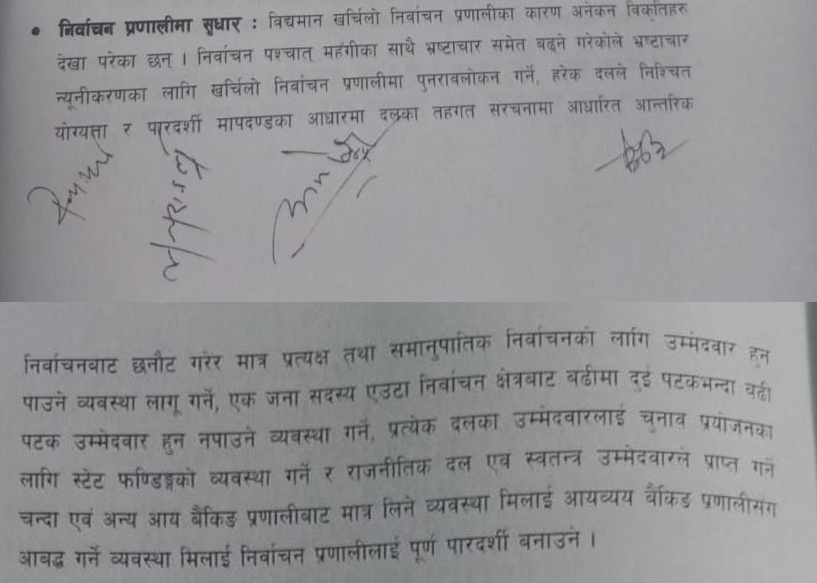 • निर्वाचन प्रणालीमा सुधार : विद्यमान खर्चिलो निर्वाचन प्रणालीका कारण अनेकन विकृतिहरु
देखा परेका छन् । निर्वाचन पश्चात् महंगीका साथै भ्रष्टाचार समेत बढ्ने गरेकोले भ्रष्टाचार
न्यूनीकरणका लागि खर्चिलो निर्वाचन प्रणालीमा पुनरावलोकन गर्ने, हरेक दलले निश्चित
योग्यता र पारदर्शी मापदण्डका आधारमा दलका तहगत संरचनामा आधारित आन्तरिक
निर्वाचनबाट छनौट गरेर मात्र प्रत्यक्ष तथा समानुपातिक निर्वाचनको लागि उम्मेदवार हुन
पाउने व्यवस्था लागू गर्ने, एक जना सदस्य एउटा निर्वाचन क्षेत्रबाट बढीमा दुई पटकभन्दा बढी
पटक उम्मेदवार हुन नपाउने व्यवस्था गर्ने, प्रत्येक दलका उम्मेदवारलाई चुनाव प्रयोजनका
लागि स्टेट फण्डिङ्गको व्यवस्था गर्ने र राजनीतिक दल एवं स्वतन्त्र उम्मेदवारले प्राप्त गर्ने
चन्दा एवं अन्य आय बैंकिङ प्रणालीबाट मात्र लिने व्यवस्था मिलाई आयव्यय बैंकिङ प्रणालीसंग
आबद्ध गर्ने व्यवस्था मिलाई निर्वाचन प्रणालीलाई पूर्ण पारदर्शी बनाउने ।